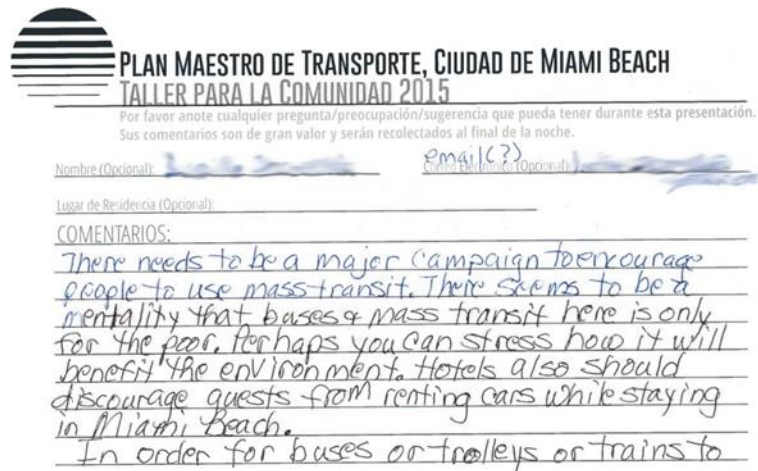 PLAN MAESTRO DE TRANSPORTE, CIUDAD DE MIAMI BEACH
TALLER PARA LA COMUNIDAD 2015
Por favor anote cualquier pregunta/preocupación/sugerencia que pueda tener durante esta presentación.
Sus comentarios son de gran valor y serán recolectados al final de la noche.
email(?)
Nombre (Opcional): Correo Electrónico (Opcional):
Lugar de Residencia (Opcional):
COMENTARIOS:
There needs to be a major campaign to encourage
people to use mass transit. There seems to be a
mentality that buses & mass transit here is only
for the poor. Perhaps you can stress how it will
benefit the environment. Hotels also should
discourage guests from renting cars while staying
in Miami Beach.
In order for buses or trolleys or trains to